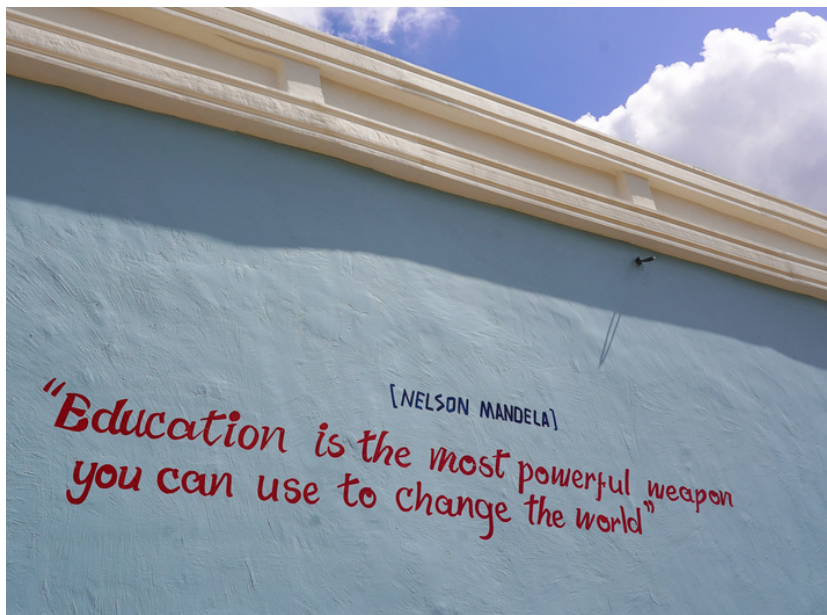 [NELSON MANDELA]
"Education is the most powerful weapon
you can use to change the world"